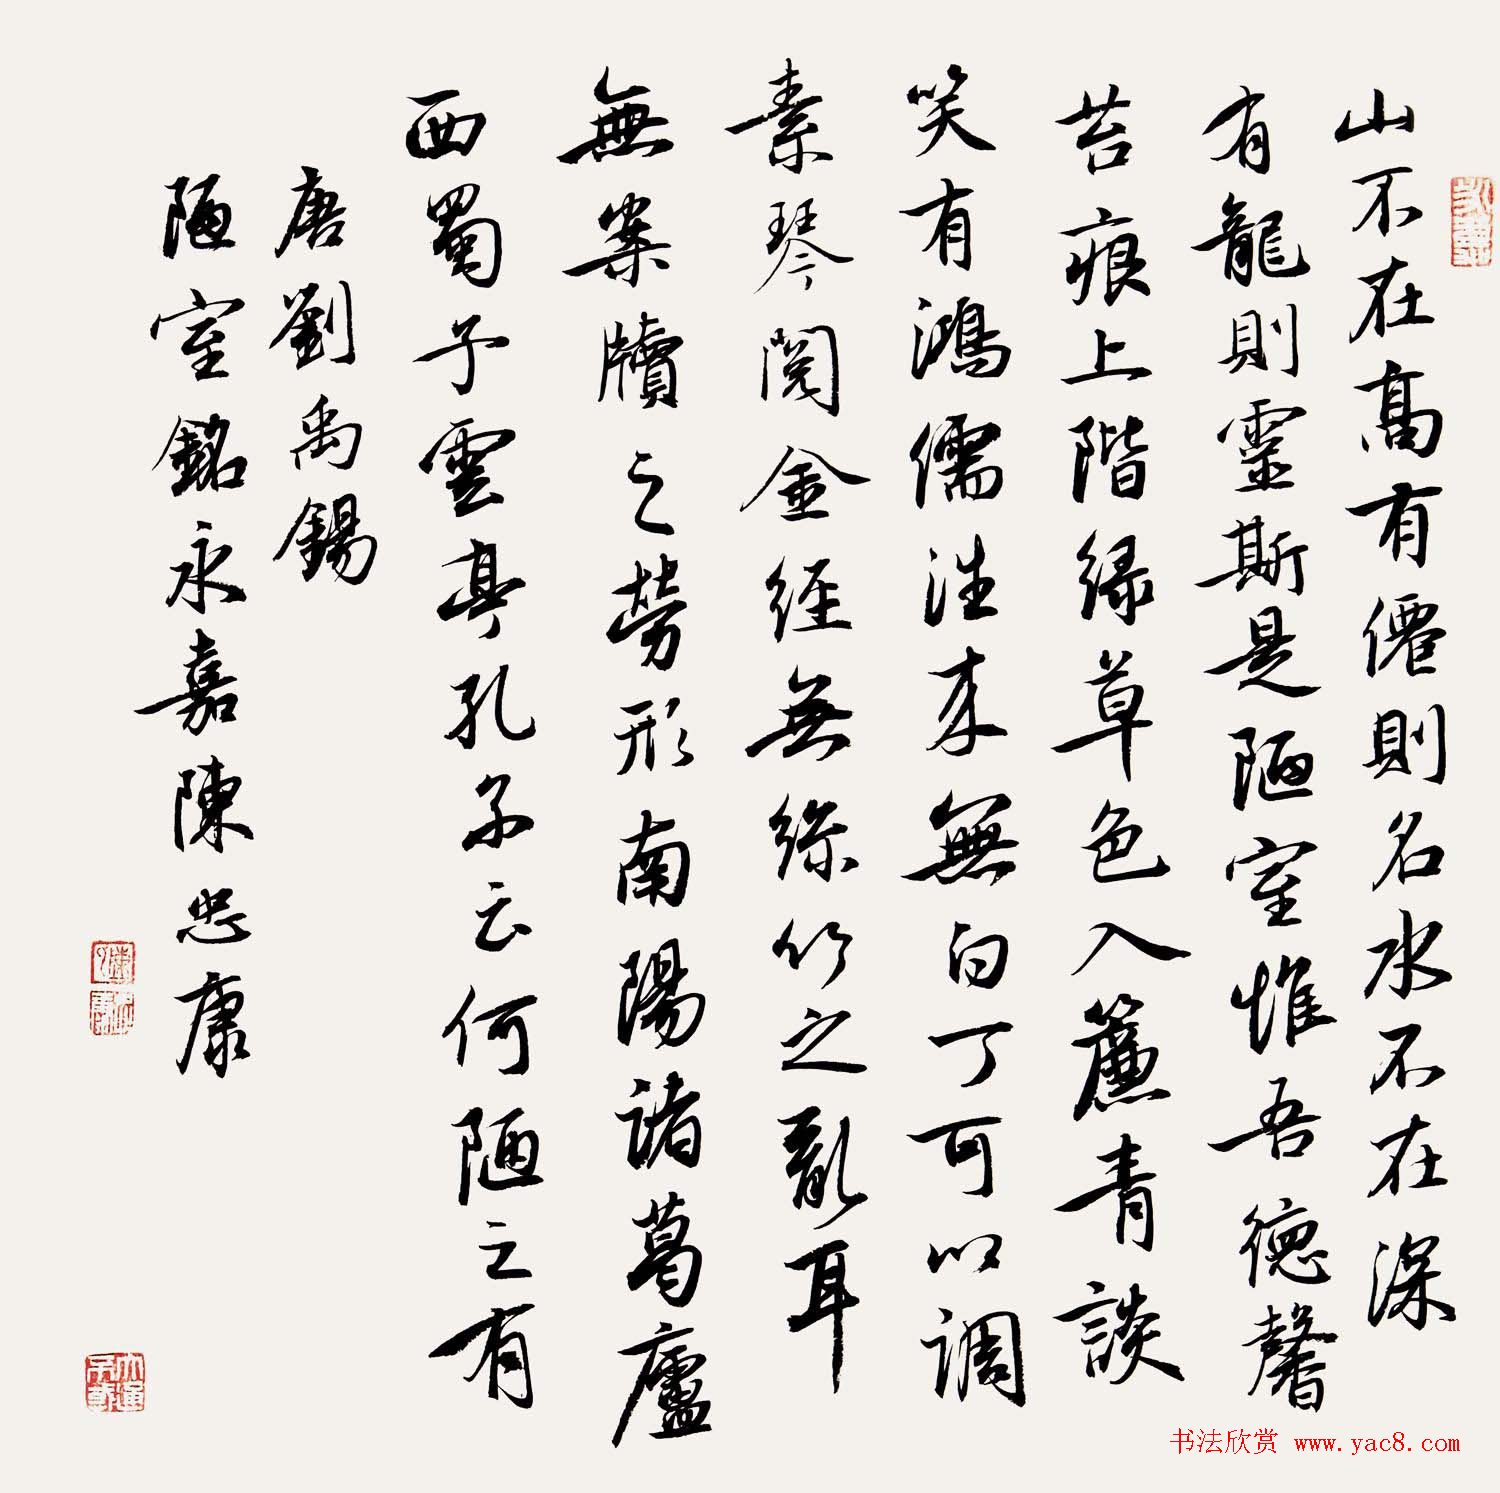 山不在高有僊則名水不在深
有龍則靈斯是陋室惟吾德馨
苔痕上階緑草色入簾青談
笑有鴻儒往来無白丁可以调
素琴閱金經無絲竹之亂耳
無案牘之勞形南陽諸葛廬
西蜀子雲亭孔子云何陋之有
唐劉禹錫
陋室銘永嘉陳忠康
书法欣赏 www.yac8.com